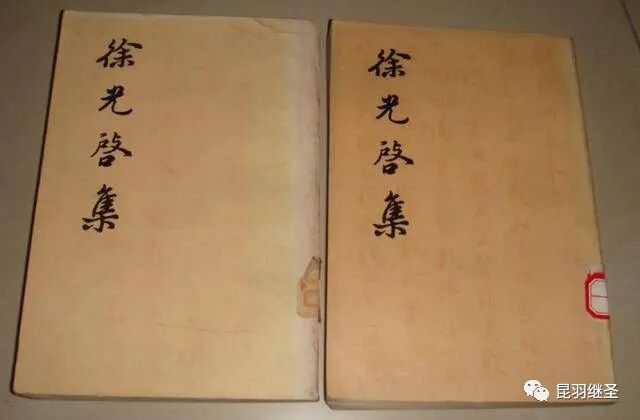 徐光啓集
徐光啓集
昆羽继圣